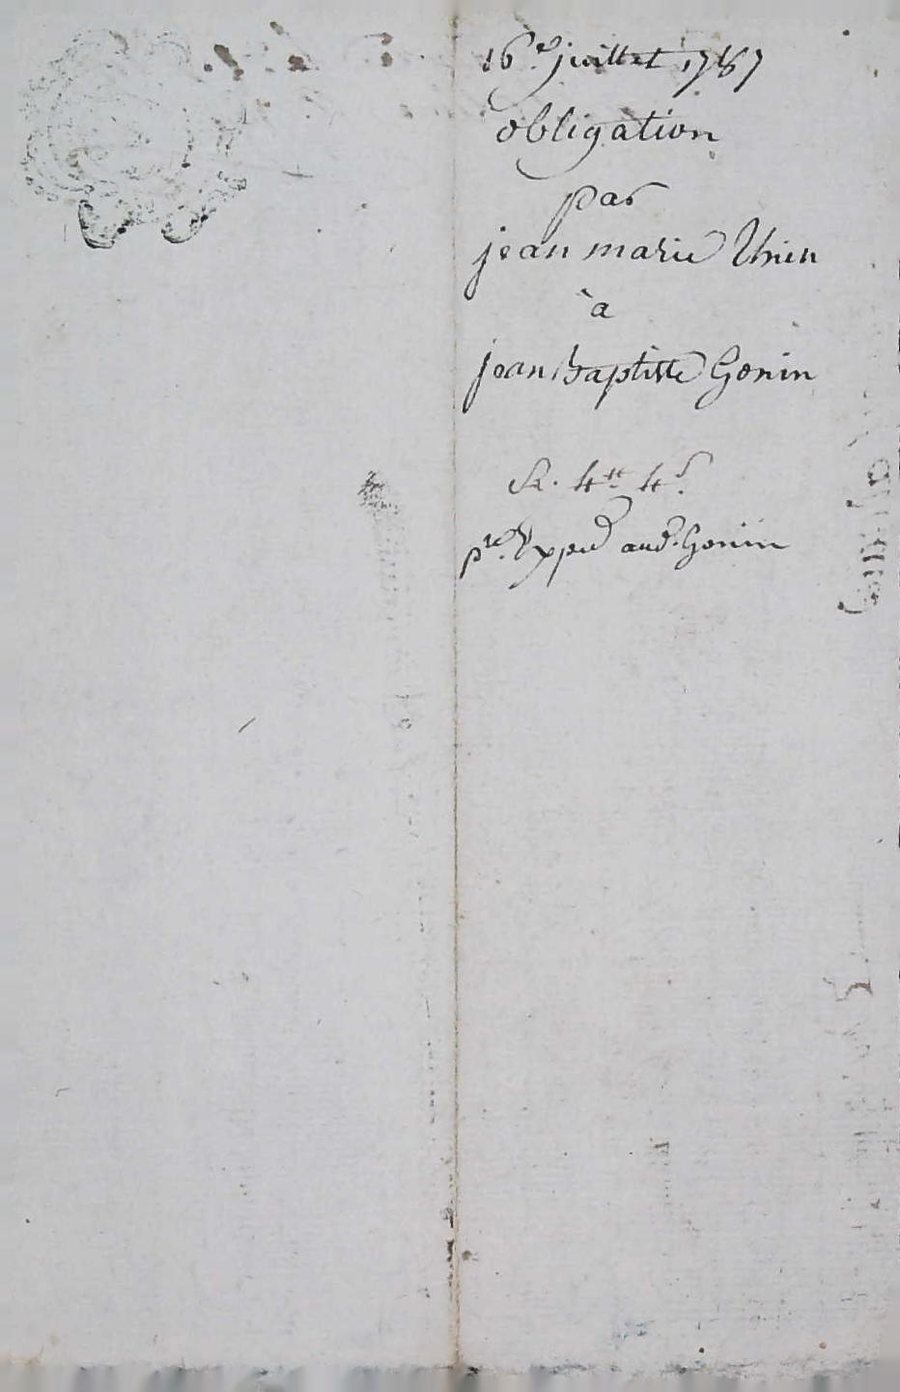 16e juillet 1787
obligation
par
jean marie Thien
à
jean Baptiste Gonin
R. 4tt 4s.
pre Exped aud. Gonin